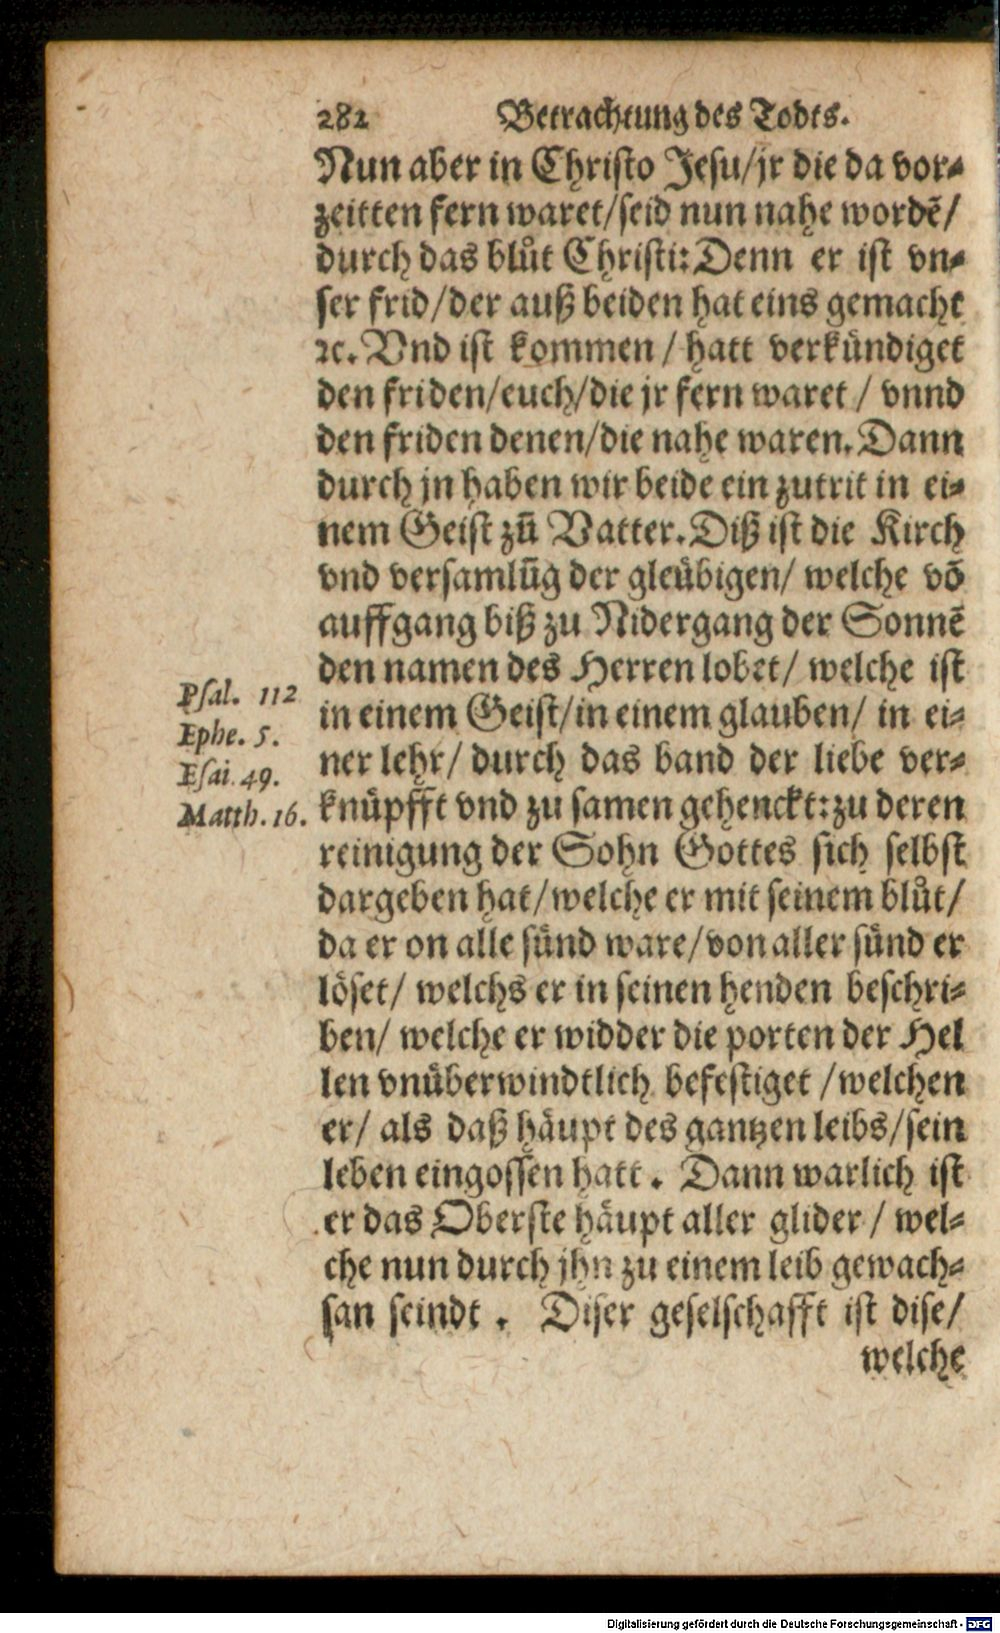 282 Betrachtung des Todts.
Nun aber in Christo Jesu/jr die da vor-
zeitten fern waret/seid nun nahe wordẽ/
durch das blůt Christi: Denn er ist vn-
ser frid/der auß beiden hat eins gemacht
ꝛc. Vnd ist kommen / hatt verkündiget
den friden/euch/die jr fern waret / vnnd
den friden denen/die nahe waren. Dann
durch jn haben wir beide ein zutrit in ei-
nem Geist zũ Vatter. Diß ist die Kirch
vnd versamlũg der gleübigen/ welche võ
auffgang biß zu Nidergang der Sonnẽ
den namen des Herren lobet/ welche ist
Psal. 112
in einem Geist/in einem glauben/ in ei-
Ephe. 5.
ner lehr/ durch das band der liebe ver-
Esai. 49.
knüpfft vnd zu samen gehenckt: zu deren
Matth. 16.
reinigung der Sohn Gottes sich selbst
dargeben hat/welche er mit seinem blůt/
da er on alle sünd ware/von aller sünd er
löset/ welchs er in seinen henden beschri-
ben/ welche er widder die porten der Hel
len vnüberwindtlich befestiget /welchen
er/ als daß häupt des gantzen leibs/sein
leben eingossen hatt. Dann warlich ist
er das Oberste häupt aller glider / wel-
che nun durch jhn zu einem leib gewach-
san seindt. Diser geselschafft ist dise/
welche
Digitalisierung gefördert durch die Deutsche Forschungsgemeinschaft - DFG